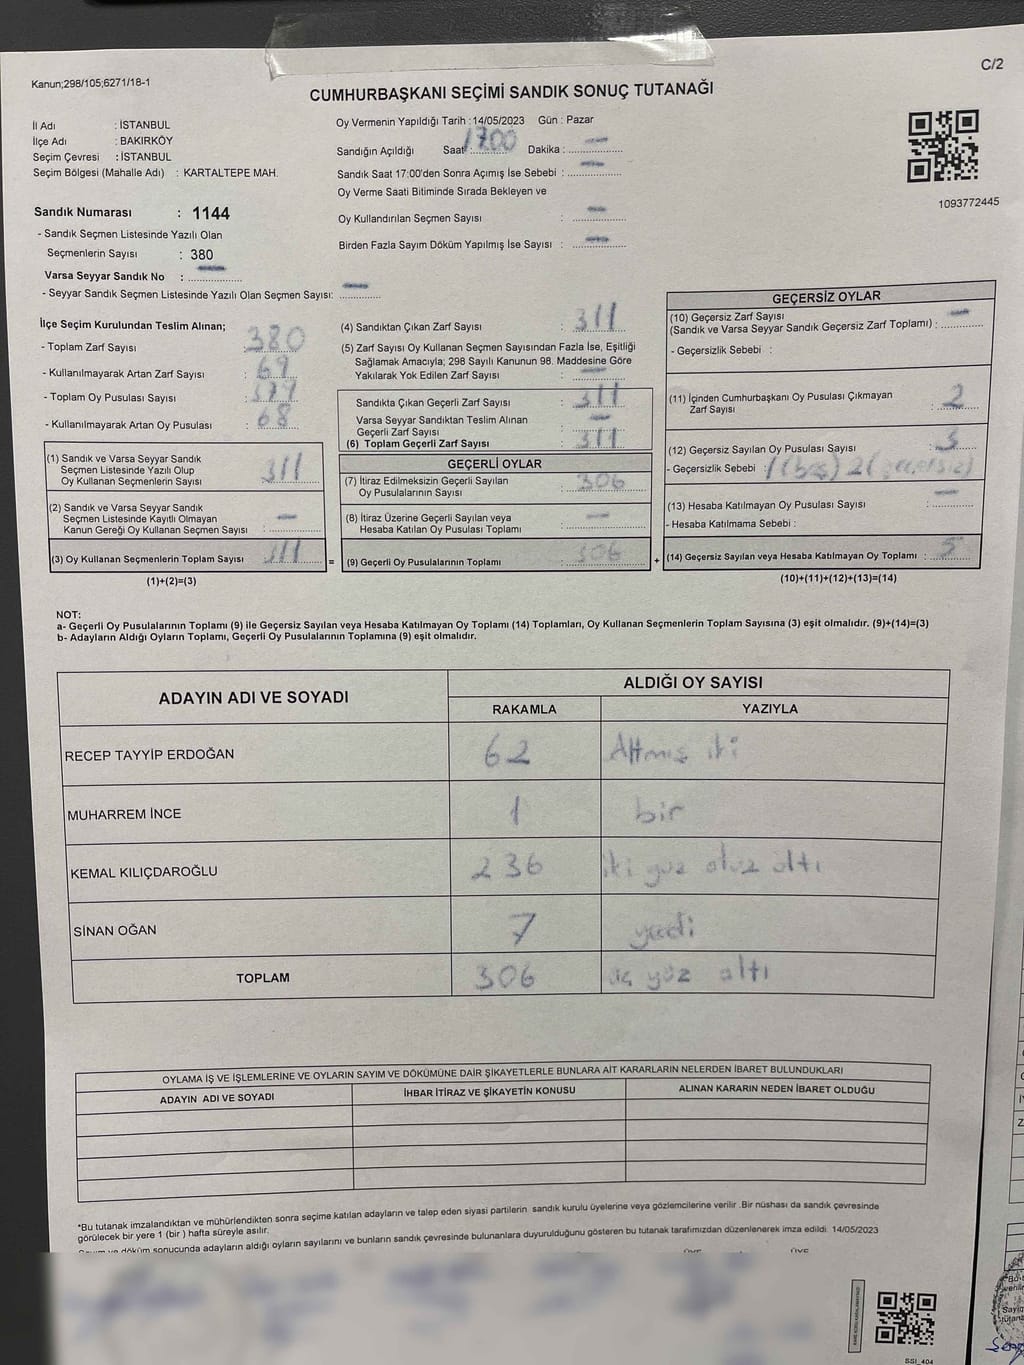 C/2
Kanun;298/105;6271/18-1
CUMHURBAŞKANI SEÇİMİ SANDIK SONUÇ TUTANAĞI
İl Adı : İSTANBUL
İlçe Adı : BAKIRKÖY
Seçim Çevresi : İSTANBUL
Seçim Bölgesi (Mahalle Adı) : KARTALTEPE MAH.
Sandık Numarası : 1144
- Sandık Seçmen Listesinde Yazılı Olan
Seçmenlerin Sayısı : 380
Varsa Seyyar Sandık No : —
- Seyyar Sandık Seçmen Listesinde Yazılı Olan Seçmen Sayısı: —
Oy Vermenin Yapıldığı Tarih :14/05/2023 Gün : Pazar
Sandığın Açıldığı Saat : 17.00 Dakika : —
Sandık Saat 17:00'den Sonra Açımış İse Sebebi : —
Oy Verme Saati Bitiminde Sırada Bekleyen ve
Oy Kullandırılan Seçmen Sayısı : —
Birden Fazla Sayım Döküm Yapılmış İse Sayısı : —
1093772445
İlçe Seçim Kurulundan Teslim Alınan;
- Toplam Zarf Sayısı : 380
- Kullanılmayarak Artan Zarf Sayısı : 69
- Toplam Oy Pusulası Sayısı : 379
- Kullanılmayarak Artan Oy Pusulası : 68
(1) Sandık ve Varsa Seyyar Sandık
Seçmen Listesinde Yazılı Olup
Oy Kullanan Seçmenlerin Sayısı : 311
(2) Sandık ve Varsa Seyyar Sandık
Seçmen Listesinde Kayıtlı Olmayan
Kanun Gereği Oy Kullanan Seçmen Sayısı : —
(3) Oy Kullanan Seçmenlerin Toplam Sayısı : 311
(1)+(2)=(3)
=
(4) Sandıktan Çıkan Zarf Sayısı : 311
(5) Zarf Sayısı Oy Kullanan Seçmen Sayısından Fazla İse, Eşitliği
Sağlamak Amacıyla; 298 Sayılı Kanunun 98. Maddesine Göre
Yakılarak Yok Edilen Zarf Sayısı : —
Sandıkta Çıkan Geçerli Zarf Sayısı : 311
Varsa Seyyar Sandıktan Teslim Alınan
Geçerli Zarf Sayısı : —
(6) Toplam Geçerli Zarf Sayısı : 311
GEÇERLİ OYLAR
(7) İtiraz Edilmeksizin Geçerli Sayılan
Oy Pusulalarının Sayısı : 306
(8) İtiraz Üzerine Geçerli Sayılan veya
Hesaba Katılan Oy Pusulası Toplamı : —
(9) Geçerli Oy Pusulalarının Toplamı : 306
+
GEÇERSİZ OYLAR
(10) Geçersiz Zarf Sayısı
(Sandık ve Varsa Seyyar Sandık Geçersiz Zarf Toplamı) : —
- Geçersizlik Sebebi :
(11) İçinden Cumhurbaşkanı Oy Pusulası Çıkmayan
Zarf Sayısı : 2
(12) Geçersiz Sayılan Oy Pusulası Sayısı : 3
- Geçersizlik Sebebi : 1(boş) 2(geçersiz)
(13) Hesaba Katılmayan Oy Pusulası Sayısı : —
- Hesaba Katılmama Sebebi :
(14) Geçersiz Sayılan veya Hesaba Katılmayan Oy Toplamı : 5
(10)+(11)+(12)+(13)=(14)
NOT:
a- Geçerli Oy Pusulalarının Toplamı (9) ile Geçersiz Sayılan veya Hesaba Katılmayan Oy Toplamı (14) Toplamları, Oy Kullanan Seçmenlerin Toplam Sayısına (3) eşit olmalıdır. (9)+(14)=(3)
b- Adayların Aldığı Oyların Toplamı, Geçerli Oy Pusulalarının Toplamına (9) eşit olmalıdır.
ADAYIN ADI VE SOYADI ALDIĞI OY SAYISI
RAKAMLA YAZIYLA
RECEP TAYYİP ERDOĞAN 62 Altmış iki
MUHARREM İNCE 1 bir
KEMAL KILIÇDAROĞLU 236 iki yüz otuz altı
SİNAN OĞAN 7 yedi
TOPLAM 306 üç yüz altı
OYLAMA İŞ VE İŞLEMLERİNE VE OYLARIN SAYIM VE DÖKÜMÜNE DAİR ŞİKAYETLERLE BUNLARA AİT KARARLARIN NELERDEN İBARET BULUNDUKLARI
ADAYIN ADI VE SOYADI İHBAR İTİRAZ VE ŞİKAYETİN KONUSU ALINAN KARARIN NEDEN İBARET OLDUĞU
*Bu tutanak imzalandıktan ve mühürlendikten sonra seçime katılan adayların ve talep eden siyasi partilerin sandık kurulu üyelerine veya gözlemcilerine verilir .Bir nüshası da sandık çevresinde
görülecek bir yere 1 (bir ) hafta süreyle asılır.
Sayım ve döküm sonucunda adayların aldığı oyların sayılarını ve bunların sandık çevresinde bulunanlara duyurulduğunu gösteren bu tutanak tarafımızdan düzenlenerek imza edildi. 14/05/2023
ÜYE ÜYE
SSI_404